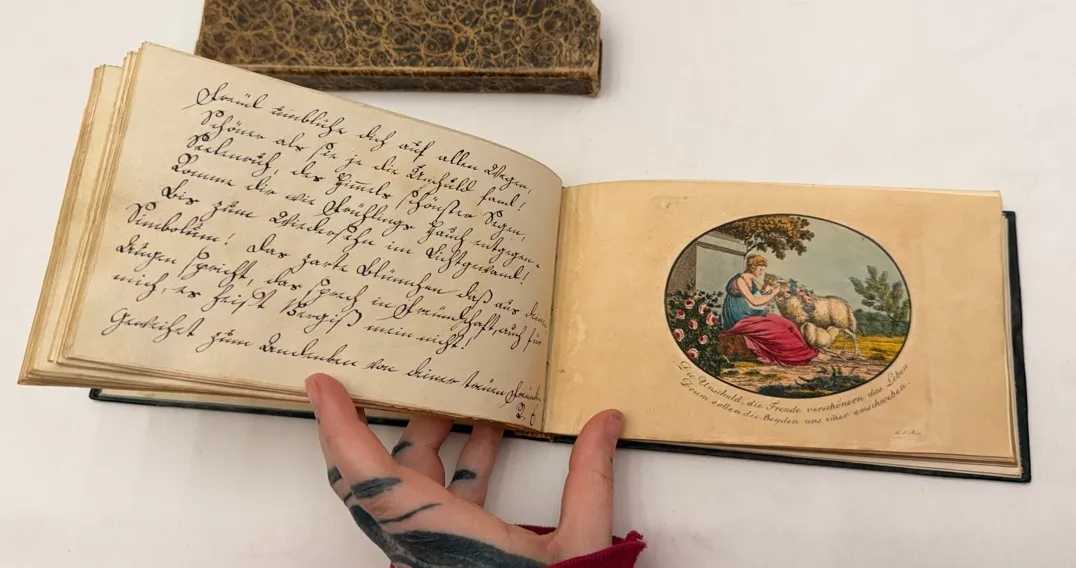 Freud umblühe dich auf allen Wegen,
Schöner als sie je die Unschuld fand!
Seelenruh, des Himels schönster Segen,
Komme dir wie Frühlings Hauch entgegen.
Bis zum Wiedersehn im Lichtgewand!
Simbolum! Das zarte Blümchen daß aus deinen
Augen spricht, das sprech in Freundschaft, auch für
mich, es heist Vergiß mein nicht!
Geweihet zum Andenken von deiner treuen
Die Unschuld, die Freude verschönern das Leben
Drum sollen die Beyden uns imer umschweben.